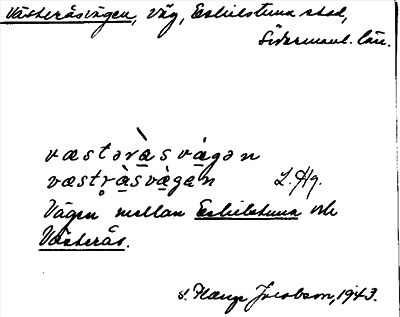 Västeråsvägen, väg, Eskilstuna stad,
Södermanl. län.
væstəràsvägən
væstr̥àsvägan L. Hg.
Vägen mellan Eskilstuna och
Västerås.
Jacobson, 1943.